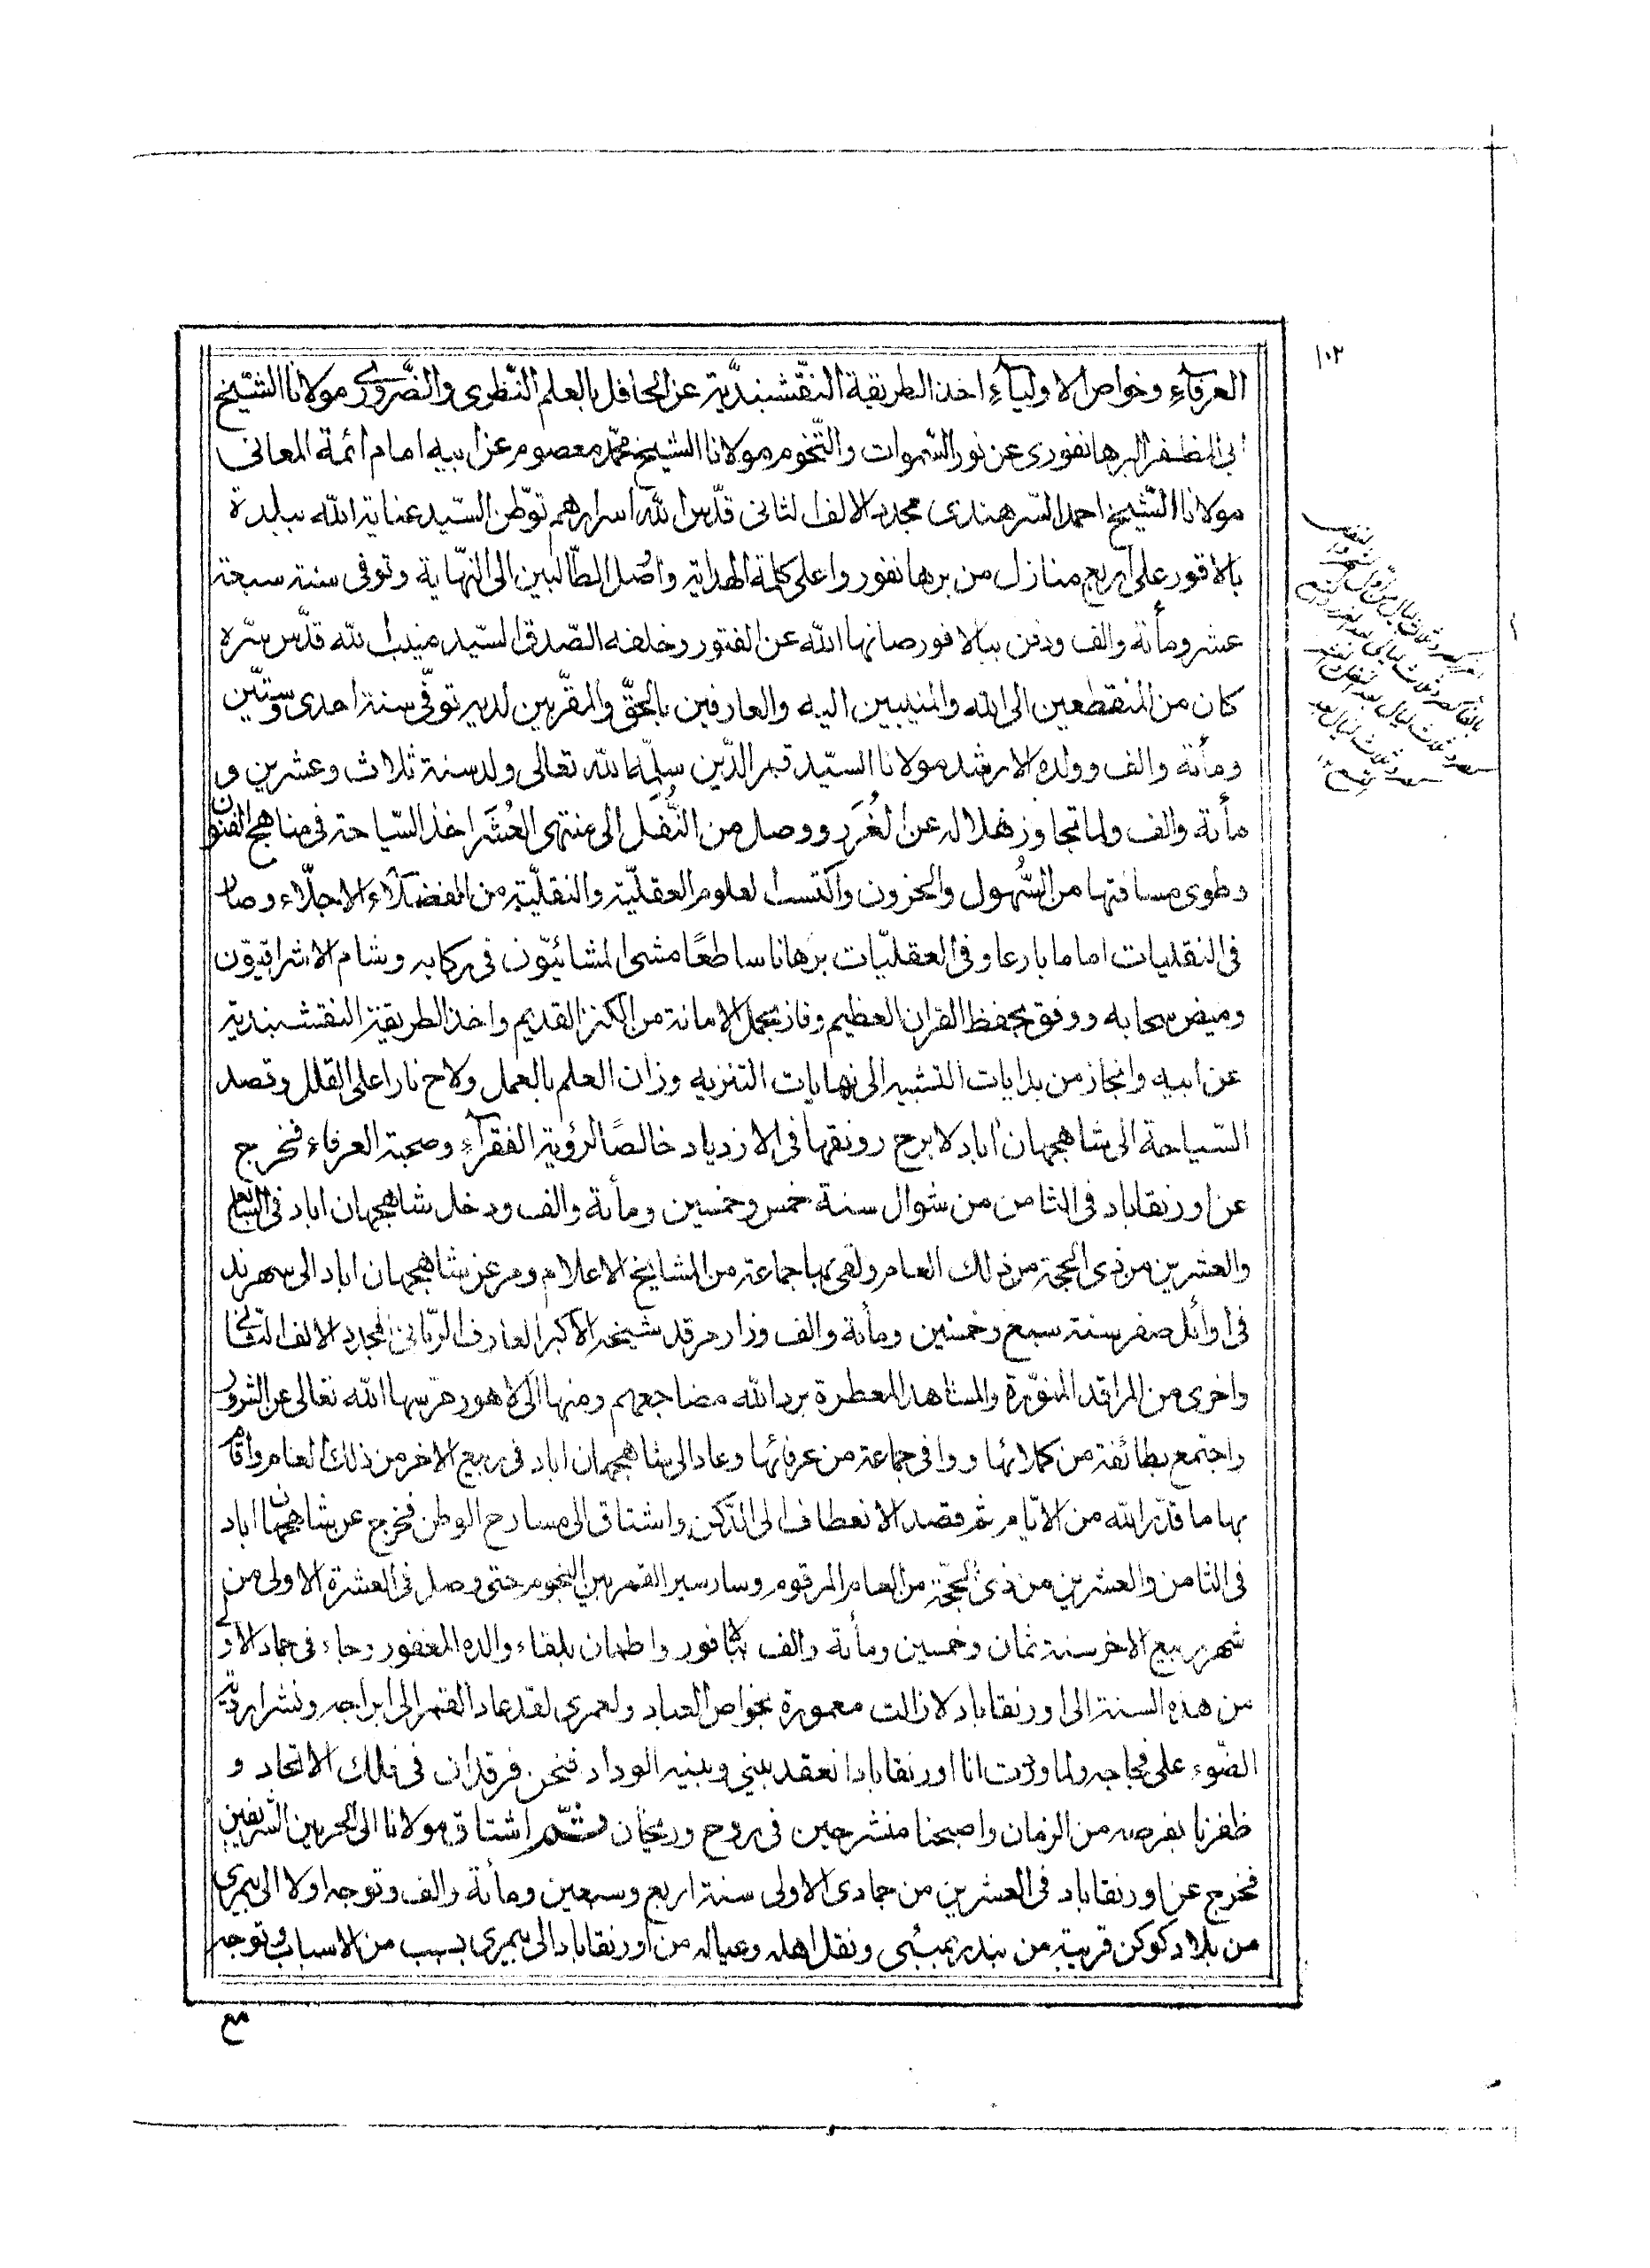 ١٠٢
العرفآءِ وخواص الاوليآءِ اخذ الطريقة النّقشبنديّة عن الحافل بالعلم النّظرى والضّرورى مولانا الشّيخ
ابى المظفر البرهانفورى عن نور السّموات والتّخوم مولانا الشيخ محمّد معصوم عن ابيه امام ائمة المعانى
مولانا الشّيخ احمد السّرهندى مجدد الالف الثانى قدّس اللّه اسرارهم توّطن السّيد عناية اللّه ببلدة
بالافور على اربع منازل من برهانفور واعلى كلمة الهداية واصُل الطّالبين الى النّهاية وتوفى سنة سبعة
عشر ومأئة والف ودفن ببالافور صانها اللّه عن الفتور وخلفه الصّدق السّيد منيب اللّه قدّس سّره
كان من المنقطعين الى اللّه والمنيبين اليه والعارفين بالحقّ والمقرّبين لديه توفّى سنة احدى وستّين
ومأئة والف وولده الارشد مولانا السيّد قمر الدّين سلّمه اللّه تعالى ولد سنة ثلاث وعشرين و
مأئة والف ولما تجاوز هلاله عن الغُرَر ووصل من النُّفَل الى منتهى العُشَر اخذ السّياحة فى مناهج الفنون
وطوى مسافتها من السُّهول والحزون واكتسب العلوم العقليّة والنقليّة من الفضلآء الاجلّاء وصار
فى النقليات اماما بارعا وفى العقليّات برهانا ساطعًا مشى المشائيّون فى ركابه وشام الاشراقيّون
وميض سحابه ووفق بحفظ القران العظيم وفاز بحمل الامانة من الكنز القديم واخذ الطريقة النقشبندية
عن ابيه وانحاز من بدايات التشبيه الى نهايات التنزيه وزان العلم بالعمل ولاح نارا على القلل وقصد
السّياحة الى شاهجهان اباد لا برح رونقها فى الازدياد خالصًا لرؤية الفقرآء وصحبة العرفاء فخرج
عن اورنقاباد فى الثامن من شوال سنة خمس وخمسين ومأئة والف ودخل شاهجهان اباد فى السابع
والعشرين من ذى الحجة من ذلك العام ولقى بها جماعة من المشايخ الاعلام ومر عن شاهجهان اباد الى سهرند
فى اوائل صفر سنة سبع وخمسين ومأئة والف وزار مرقد شيخه الاكبر العارف الربّانى المجدد الالف الثانى
واخرى من المراقد المنوّرة والمشاهد المعطرة برد اللّه مضاجعهم ومنها الى لاهور حرّسها اللّه تعالى عن الشرور
واجتمع بطائفة من كملائها ووافى جماعة من عرفائها وعاد الى شاهجهان اباد فى ربيع الاخر من ذلك العام واقام
بها ما قدّر اللّه من الايّام ثم قصد الانعطاف الى الدّكن واشتاق الى مسارح الوطن فخرج عن شاهجهان اباد
فى الثامن والعشرين من ذى الحجّة من العام المرقوم وسار سير القمر بين النجوم حتى وصل فى العشرة الاولى من
شهر ربيع الاخر سنة ثمان وخمسين ومأئة والف بالافور واطمان بلقاء والده المغفور وجاء فى جماد الاولى
من هذه السنة الى اورنقاباد لا زالت معمورة بخواص العباد ولعمرى لقد عاد القمر الى ابراجه ونشر اردية
الضّوء على فجاجه ولما وردت انا اورنقاباد انعقد بينى وبينه الوداد فنحن فرقدان فى فلك الاتحاد و
ظفرنا بفرصة من الزمان واصبحنا منشرحين فى روح وريحان ثم اشتاق مولانا الى الحرمين الشريفين
فخرج عن اورنقاباد فى العشرين من جمادى الاولى سنة اربع وسبعين ومأئة والف وتوجه اولا الى بيمرى
من بلاد كوكن قريبة من بندر بمبئى ونقل اهله وعياله من اورنقاباد الى بيمرى بسبب من الاسباب وتوجه
مع